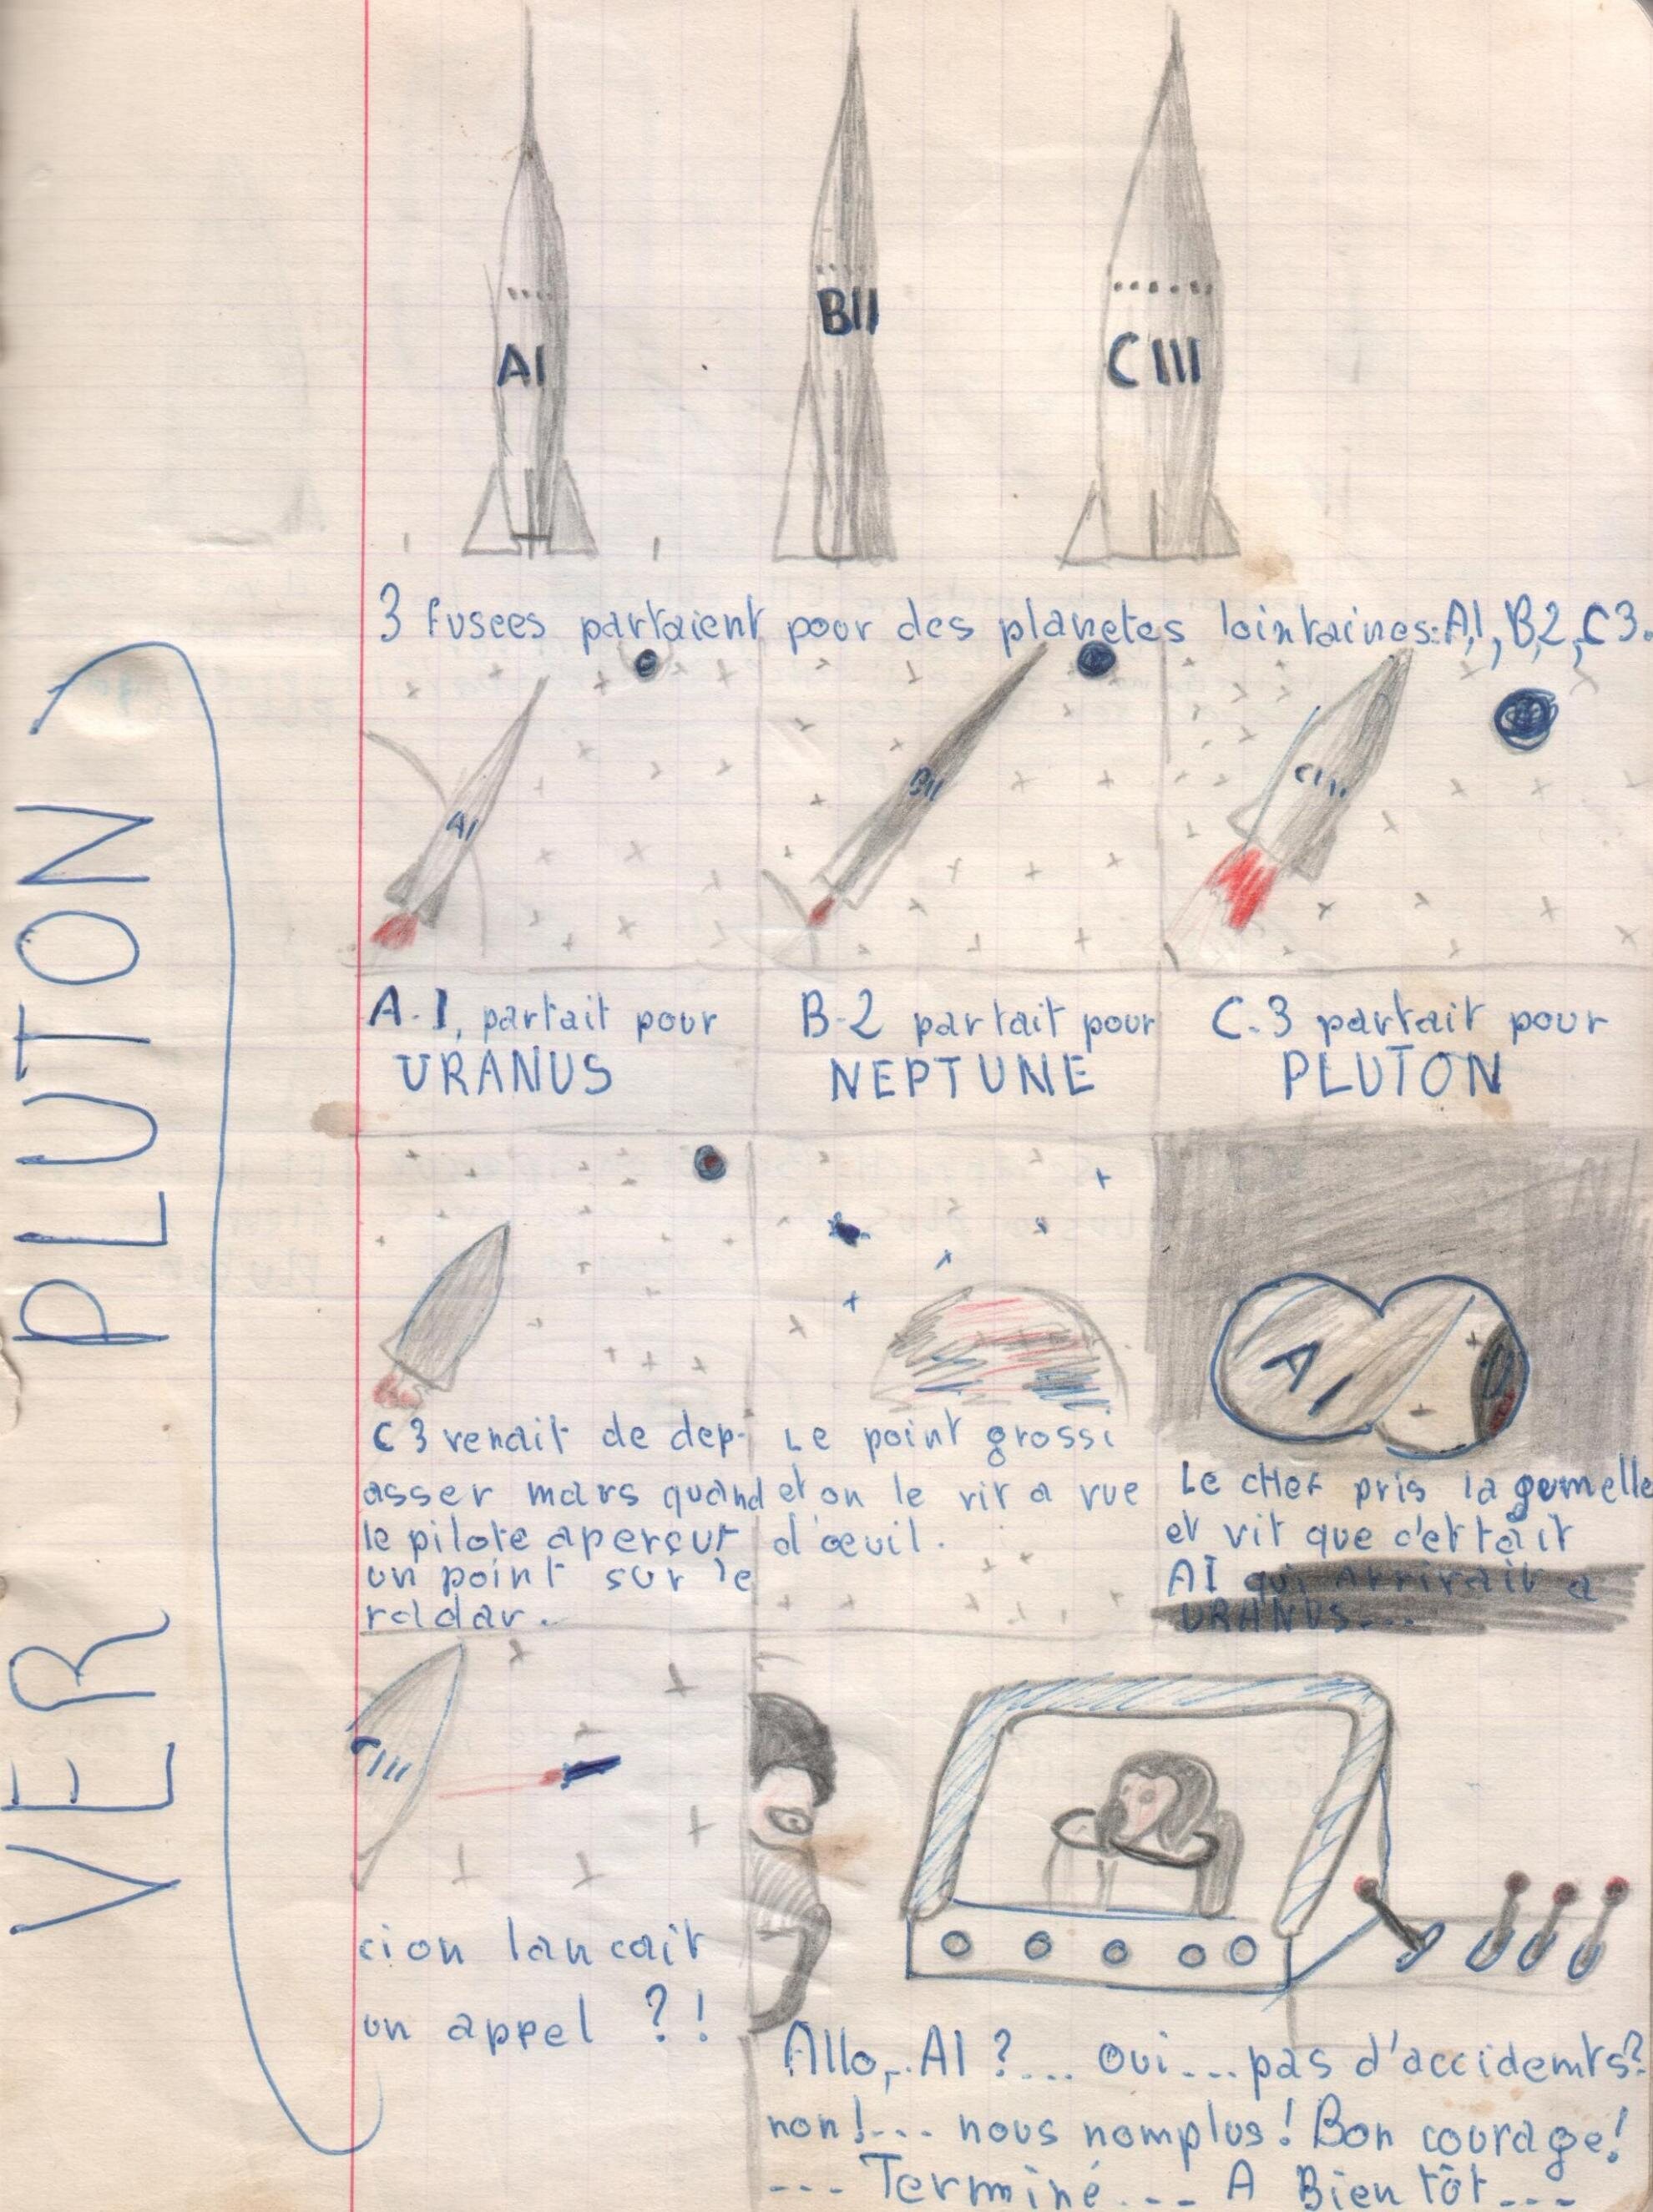 VER PLUTON
AI
BII
CIII
3 fusees partaient pour des planetes lointaines: A,1, B,2, C3.
AI
BII
CIII
A.1, partait pour
URANUS
B-2 partait pour
NEPTUNE
C.3 partait pour
PLUTON
C3 venait de dep-
asser mars quand
le pilote aperçut
un point sur le
radar.
Le point grossi
et on le vit a vue
d'œuil.
AI
Le cHef pris la gumelle
et vit que c'ettait
AI qui arrivait a
URANUS...
CIII
cion lancait
un appel ?!
Allo,.. AI ?... oui... pas d'accidemts?
non!... nous nomplus! Bon courage!
--- Terminé --- A Bien tôt ---